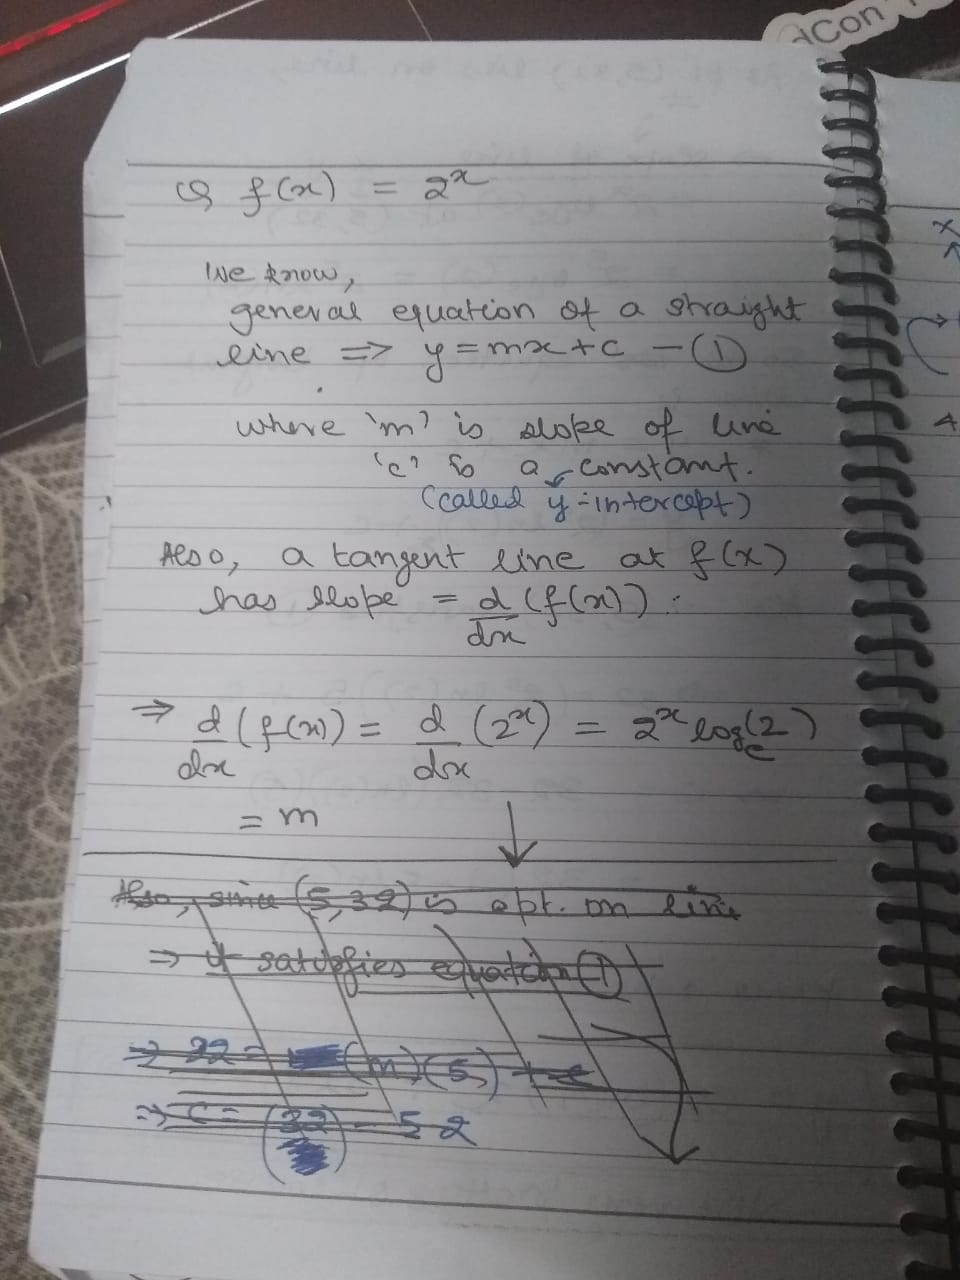 dCon
Q f(x) = 2^x
We know,
general equation of a straight
line => y = mx + c - ①
where 'm' is slope of line
'c' is a constant.
(called y-intercept)
Also, a tangent line at f(x)
has slope = d/dx (f(x)).
⇒ d/dx (f(x)) = d/dx (2^x) = 2^x log_e(2)
= m
Also, since (5,32) is a pt. on line
⇒ it satisfies equation ①
⇒ 32 = (m)(5) + c
⇒ c = (32) - 5 2